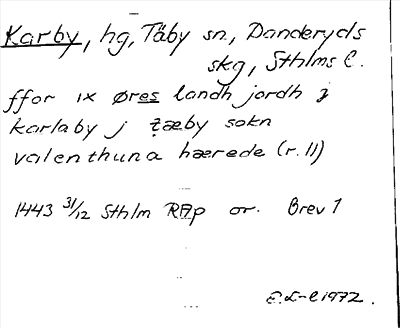 Karby, hg, Täby sn, Danderyds
skg, Sthlms l.
ffor ix øres landh jordh j
karlaby j tæby sokn
valenthuna hærede (r. 11)
1443 31/12 Sthlm RAp or. Brev 1
E. L-C 1972.